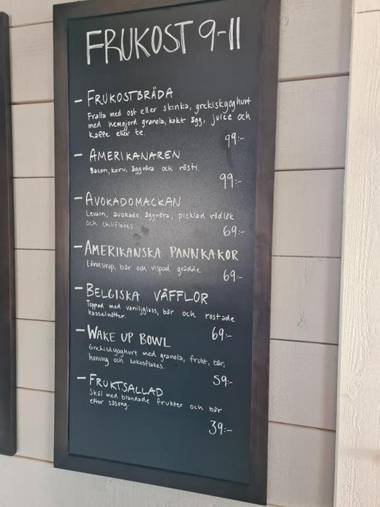 FRUKOST 9-11
- FRUKOSTBRÄDA
Fralla med ost eller skinka, grekiskyoghurt
med hemgjord granola, kokt ägg, juice och
kaffe eller te.
99:-
- AMERIKANAREN
Bacon, korv, äggröra och rösti.
99:-
- AVOKADOMACKAN
Levain, avokado, äggröra, picklad rödlök
och chiliflakes.
69:-
- AMERIKANSKA PANNKAKOR
Lönnsirap, bär och vispad grädde.
69:-
- BELGISKA VÅFFLOR
Toppad med vaniljglass, bär och rostade
hasselnötter.
69:-
- WAKE UP BOWL
Grekiskyoghurt med granola, frukt, bär,
honung och kokosflakes.
59:-
- FRUKTSALLAD
Skål med blandade frukter och bär
efter säsong.
39:-